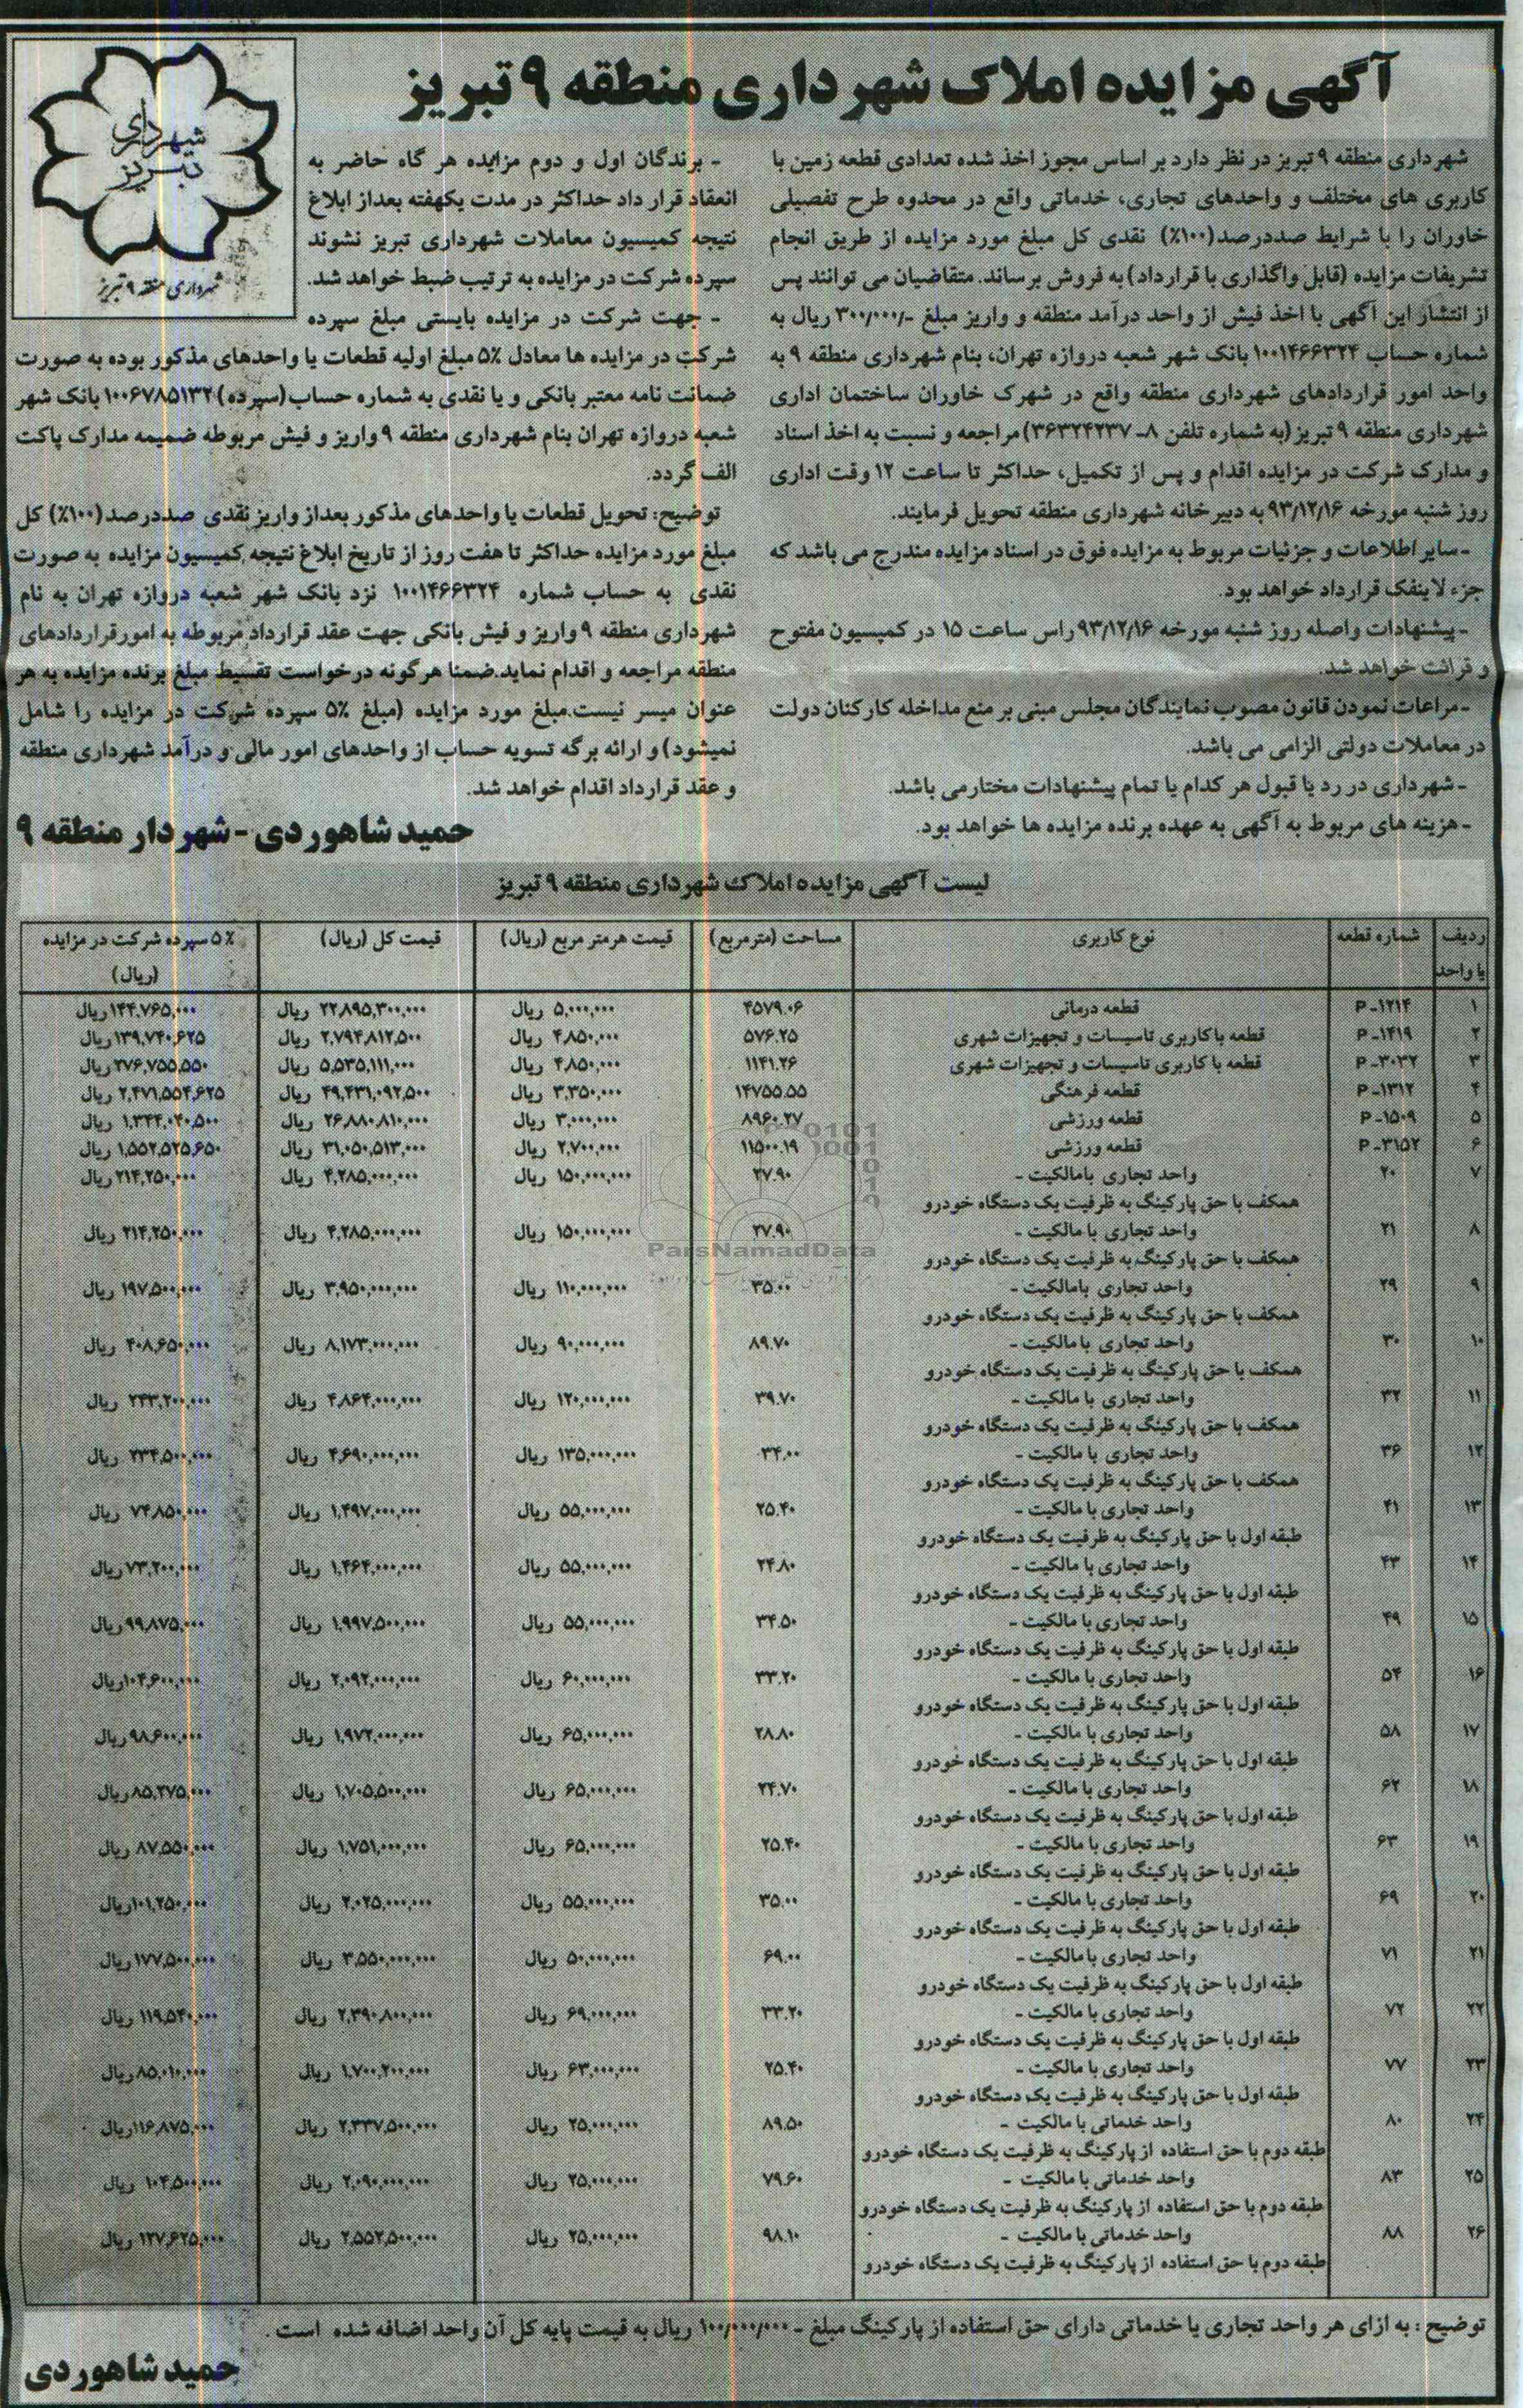 آگهی مزایده املاک شهرداری منطقه ۹ تبریز
شهرداری
تبریز
شهرداری منطقه ۹ تبریز
شهرداری منطقه ۹ تبریز در نظر دارد بر اساس مجوز اخذ شده تعدادی قطعه زمین با
کاربری های مختلف و واحدهای تجاری، خدماتی واقع در محدوه طرح تفصیلی
خاوران را با شرایط صددرصد (۱۰۰٪) نقدی کل مبلغ مورد مزایده از طریق انجام
تشریفات مزایده (قابل واگذاری با قرارداد) به فروش برساند. متقاضیان می توانند پس
از انتشار این آگهی با اخذ فیش از واحد درآمد منطقه و واریز مبلغ -/۳۰۰/۰۰۰ ریال به
شماره حساب ۱۰۰۱۴۶۶۳۲۴ بانک شهر شعبه دروازه تهران، بنام شهرداری منطقه ۹ به
واحد امور قراردادهای شهرداری منطقه واقع در شهرک خاوران ساختمان اداری
شهرداری منطقه ۹ تبریز (به شماره تلفن ۸-۳۶۳۲۴۲۳۷) مراجعه و نسبت به اخذ اسناد
و مدارک شرکت در مزایده اقدام و پس از تکمیل، حداکثر تا ساعت ۱۲ وقت اداری
روز شنبه مورخه ۹۳/۱۲/۱۶ به دبیرخانه شهرداری منطقه تحویل فرمایند.
-سایر اطلاعات و جزئیات مربوط به مزایده فوق در اسناد مزایده مندرج می باشد که
جزء لاینفک قرارداد خواهد بود.
-پیشنهادات واصله روز شنبه مورخه ۹۳/۱۲/۱۶ راس ساعت ۱۵ در کمیسیون مفتوح
و قرائت خواهد شد.
-مراعات نمودن قانون مصوب نمایندگان مجلس مبنی بر منع مداخله کارکنان دولت
در معاملات دولتی الزامی می باشد.
-شهرداری در رد یا قبول هر کدام یا تمام پیشنهادات مختار می باشد.
-هزینه های مربوط به آگهی به عهده برنده مزایده ها خواهد بود.
- برندگان اول و دوم مزایده هر گاه حاضر به
انعقاد قرار داد حداکثر در مدت یکهفته بعداز ابلاغ
نتیجه کمیسیون معاملات شهرداری تبریز نشوند
سپرده شرکت در مزایده به ترتیب ضبط خواهد شد.
- جهت شرکت در مزایده بایستی مبلغ سپرده
شرکت در مزایده ها معادل ۵٪ مبلغ اولیه قطعات یا واحدهای مذکور بوده به صورت
ضمانت نامه معتبر بانکی و یا نقدی به شماره حساب (سپرده) ۱۰۰۶۷۸۵۱۳۲ بانک شهر
شعبه دروازه تهران بنام شهرداری منطقه ۹ واریز و فیش مربوطه ضمیمه مدارک پاکت
الف گردد.
توضیح: تحویل قطعات یا واحدهای مذکور بعداز واریز نقدی صددرصد (۱۰۰٪) کل
مبلغ مورد مزایده حداکثر تا هفت روز از تاریخ ابلاغ نتیجه کمیسیون مزایده به صورت
نقدی به حساب شماره ۱۰۰۱۴۶۶۳۲۴ نزد بانک شهر شعبه دروازه تهران به نام
شهرداری منطقه ۹ واریز و فیش بانکی جهت عقد قرارداد مربوطه به امورقراردادهای
منطقه مراجعه و اقدام نماید.ضمنا هرگونه درخواست تقسیط مبلغ برنده مزایده به هر
عنوان میسر نیست.مبلغ مورد مزایده (مبلغ ۵٪ سپرده شرکت در مزایده را شامل
نمیشود) و ارائه برگه تسویه حساب از واحدهای امور مالی و درآمد شهرداری منطقه
و عقد قرارداد اقدام خواهد شد.
حمید شاهوردی - شهردار منطقه ۹
لیست آگهی مزایده املاک شهرداری منطقه ۹ تبریز
ردیف شماره قطعه نوع کاربری مساحت (مترمربع) قیمت هرمتر مربع (ریال) قیمت کل (ریال) ۵٪ سپرده شرکت در مزایده
یا واحد (ریال)
۱ P-۱۲۱۴ قطعه درمانی ۴۵۷۹.۰۶ ۵,۰۰۰,۰۰۰ ریال ۲۲,۸۹۵,۳۰۰,۰۰۰ ریال ۱۴۴,۷۶۵,۰۰۰ ریال
۲ P-۱۴۱۹ قطعه با کاربری تاسیسات و تجهیزات شهری ۵۷۶.۲۵ ۴,۸۵۰,۰۰۰ ریال ۲,۷۹۴,۸۱۲,۵۰۰ ریال ۱۳۹,۷۴۰,۶۲۵ ریال
۳ P-۳۰۳۲ قطعه با کاربری تاسیسات و تجهیزات شهری ۱۱۴۱.۲۶ ۴,۸۵۰,۰۰۰ ریال ۵,۵۳۵,۱۱۱,۰۰۰ ریال ۲۷۶,۷۵۵,۵۵۰ ریال
۴ P-۱۳۱۲ قطعه فرهنگی ۱۴۷۵۵.۵۵ ۳,۳۵۰,۰۰۰ ریال ۴۹,۴۳۱,۰۹۲,۵۰۰ ریال ۲,۴۷۱,۵۵۴,۶۲۵ ریال
۵ P-۱۵۰۹ قطعه ورزشی ۸۹۶۰.۲۷ ۳,۰۰۰,۰۰۰ ریال ۲۶,۸۸۰,۸۱۰,۰۰۰ ریال ۱,۳۴۴,۰۴۰,۵۰۰ ریال
۶ P-۳۱۵۲ قطعه ورزشی ۱۱۵۰۰.۱۹ ۲,۷۰۰,۰۰۰ ریال ۳۱,۰۵۰,۵۱۳,۰۰۰ ریال ۱,۵۵۲,۵۲۵,۶۵۰ ریال
۷ ۲۰ واحد تجاری بامالکیت - ۲۷.۹۰ ۱۵۰,۰۰۰,۰۰۰ ریال ۴,۲۸۵,۰۰۰,۰۰۰ ریال ۲۱۴,۲۵۰,۰۰۰ ریال
همکف با حق پارکینگ به ظرفیت یک دستگاه خودرو
۸ ۲۱ واحد تجاری با مالکیت - ۲۷.۹۰ ۱۵۰,۰۰۰,۰۰۰ ریال ۴,۲۸۵,۰۰۰,۰۰۰ ریال ۲۱۴,۲۵۰,۰۰۰ ریال
همکف با حق پارکینگ به ظرفیت یک دستگاه خودرو
۹ ۲۹ واحد تجاری بامالکیت - ۳۵.۰۰ ۱۱۰,۰۰۰,۰۰۰ ریال ۳,۹۵۰,۰۰۰,۰۰۰ ریال ۱۹۷,۵۰۰,۰۰۰ ریال
همکف با حق پارکینگ به ظرفیت یک دستگاه خودرو
۱۰ ۳۰ واحد تجاری بامالکیت - ۸۹.۷۰ ۹۰,۰۰۰,۰۰۰ ریال ۸,۱۷۳,۰۰۰,۰۰۰ ریال ۴۰۸,۶۵۰,۰۰۰ ریال
همکف با حق پارکینگ به ظرفیت یک دستگاه خودرو
۱۱ ۳۲ واحد تجاری با مالکیت - ۳۹.۷۰ ۱۲۰,۰۰۰,۰۰۰ ریال ۴,۸۶۴,۰۰۰,۰۰۰ ریال ۲۴۳,۲۰۰,۰۰۰ ریال
همکف با حق پارکینگ به ظرفیت یک دستگاه خودرو
۱۲ ۳۶ واحد تجاری با مالکیت - ۳۴.۰۰ ۱۳۵,۰۰۰,۰۰۰ ریال ۴,۶۹۰,۰۰۰,۰۰۰ ریال ۲۳۴,۵۰۰,۰۰۰ ریال
همکف با حق پارکینگ به ظرفیت یک دستگاه خودرو
۱۳ ۴۱ واحد تجاری با مالکیت - ۲۵.۴۰ ۵۵,۰۰۰,۰۰۰ ریال ۱,۴۹۷,۰۰۰,۰۰۰ ریال ۷۴,۸۵۰,۰۰۰ ریال
طبقه اول با حق پارکینگ به ظرفیت یک دستگاه خودرو
۱۴ ۴۳ واحد تجاری با مالکیت - ۲۴.۸۰ ۵۵,۰۰۰,۰۰۰ ریال ۱,۴۶۴,۰۰۰,۰۰۰ ریال ۷۳,۲۰۰,۰۰۰ ریال
طبقه اول با حق پارکینگ به ظرفیت یک دستگاه خودرو
۱۵ ۴۹ واحد تجاری با مالکیت - ۳۴.۵۰ ۵۵,۰۰۰,۰۰۰ ریال ۱,۹۹۷,۵۰۰,۰۰۰ ریال ۹۹,۸۷۵,۰۰۰ ریال
طبقه اول با حق پارکینگ به ظرفیت یک دستگاه خودرو
۱۶ ۵۴ واحد تجاری با مالکیت - ۳۳.۲۰ ۶۰,۰۰۰,۰۰۰ ریال ۲,۰۹۲,۰۰۰,۰۰۰ ریال ۱۰۴,۶۰۰,۰۰۰ ریال
طبقه اول با حق پارکینگ به ظرفیت یک دستگاه خودرو
۱۷ ۵۸ واحد تجاری با مالکیت - ۲۸.۸۰ ۶۵,۰۰۰,۰۰۰ ریال ۱,۹۷۲,۰۰۰,۰۰۰ ریال ۹۸,۶۰۰,۰۰۰ ریال
طبقه اول با حق پارکینگ به ظرفیت یک دستگاه خودرو
۱۸ ۶۲ واحد تجاری با مالکیت - ۲۴.۷۰ ۶۵,۰۰۰,۰۰۰ ریال ۱,۷۰۵,۵۰۰,۰۰۰ ریال ۸۵,۲۷۵,۰۰۰ ریال
طبقه اول با حق پارکینگ به ظرفیت یک دستگاه خودرو
۱۹ ۶۳ واحد تجاری با مالکیت - ۲۵.۴۰ ۶۵,۰۰۰,۰۰۰ ریال ۱,۷۵۱,۰۰۰,۰۰۰ ریال ۸۷,۵۵۰,۰۰۰ ریال
طبقه اول با حق پارکینگ به ظرفیت یک دستگاه خودرو
۲۰ ۶۹ واحد تجاری با مالکیت - ۳۵.۰۰ ۵۵,۰۰۰,۰۰۰ ریال ۲,۰۲۵,۰۰۰,۰۰۰ ریال ۱۰۱,۲۵۰,۰۰۰ ریال
طبقه اول با حق پارکینگ به ظرفیت یک دستگاه خودرو
۲۱ ۷۱ واحد تجاری بامالکیت - ۶۹.۰۰ ۵۰,۰۰۰,۰۰۰ ریال ۳,۵۵۰,۰۰۰,۰۰۰ ریال ۱۷۷,۵۰۰,۰۰۰ ریال
طبقه اول با حق پارکینگ به ظرفیت یک دستگاه خودرو
۲۲ ۷۲ واحد تجاری با مالکیت - ۳۳.۲۰ ۶۹,۰۰۰,۰۰۰ ریال ۲,۳۹۰,۸۰۰,۰۰۰ ریال ۱۱۹,۵۴۰,۰۰۰ ریال
طبقه اول با حق پارکینگ به ظرفیت یک دستگاه خودرو
۲۳ ۷۷ واحد تجاری با مالکیت - ۲۵.۴۰ ۶۳,۰۰۰,۰۰۰ ریال ۱,۷۰۰,۲۰۰,۰۰۰ ریال ۸۵,۰۱۰,۰۰۰ ریال
طبقه اول با حق پارکینگ به ظرفیت یک دستگاه خودرو
۲۴ ۸۰ واحد خدماتی با مالکیت - ۸۹.۵۰ ۲۵,۰۰۰,۰۰۰ ریال ۲,۳۳۷,۵۰۰,۰۰۰ ریال ۱۱۶,۸۷۵,۰۰۰ ریال
طبقه دوم با حق استفاده از پارکینگ به ظرفیت یک دستگاه خودرو
۲۵ ۸۳ واحد خدماتی با مالکیت - ۷۹.۶۰ ۲۵,۰۰۰,۰۰۰ ریال ۲,۰۹۰,۰۰۰,۰۰۰ ریال ۱۰۴,۵۰۰,۰۰۰ ریال
طبقه دوم با حق استفاده از پارکینگ به ظرفیت یک دستگاه خودرو
۲۶ ۸۸ واحد خدماتی با مالکیت - ۹۸.۱۰ ۲۵,۰۰۰,۰۰۰ ریال ۲,۵۵۲,۵۰۰,۰۰۰ ریال ۱۲۷,۶۲۵,۰۰۰ ریال
طبقه دوم با حق استفاده از پارکینگ به ظرفیت یک دستگاه خودرو
ParsNamadData
توضیح : به ازای هر واحد تجاری یا خدماتی دارای حق استفاده از پارکینگ مبلغ -۱۰۰/۰۰۰/۰۰۰ ریال به قیمت پایه کل آن واحد اضافه شده است .
حمید شاهوردی